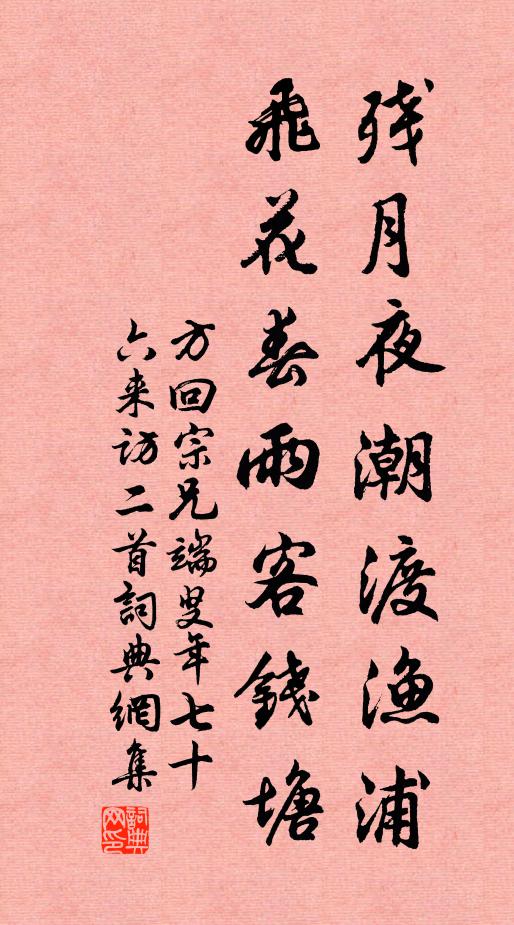 残月夜潮渡渔浦
飛花春雨客錢塘
方回宗兄端叟年七十
六来访二首詞典網集
詞典
网印